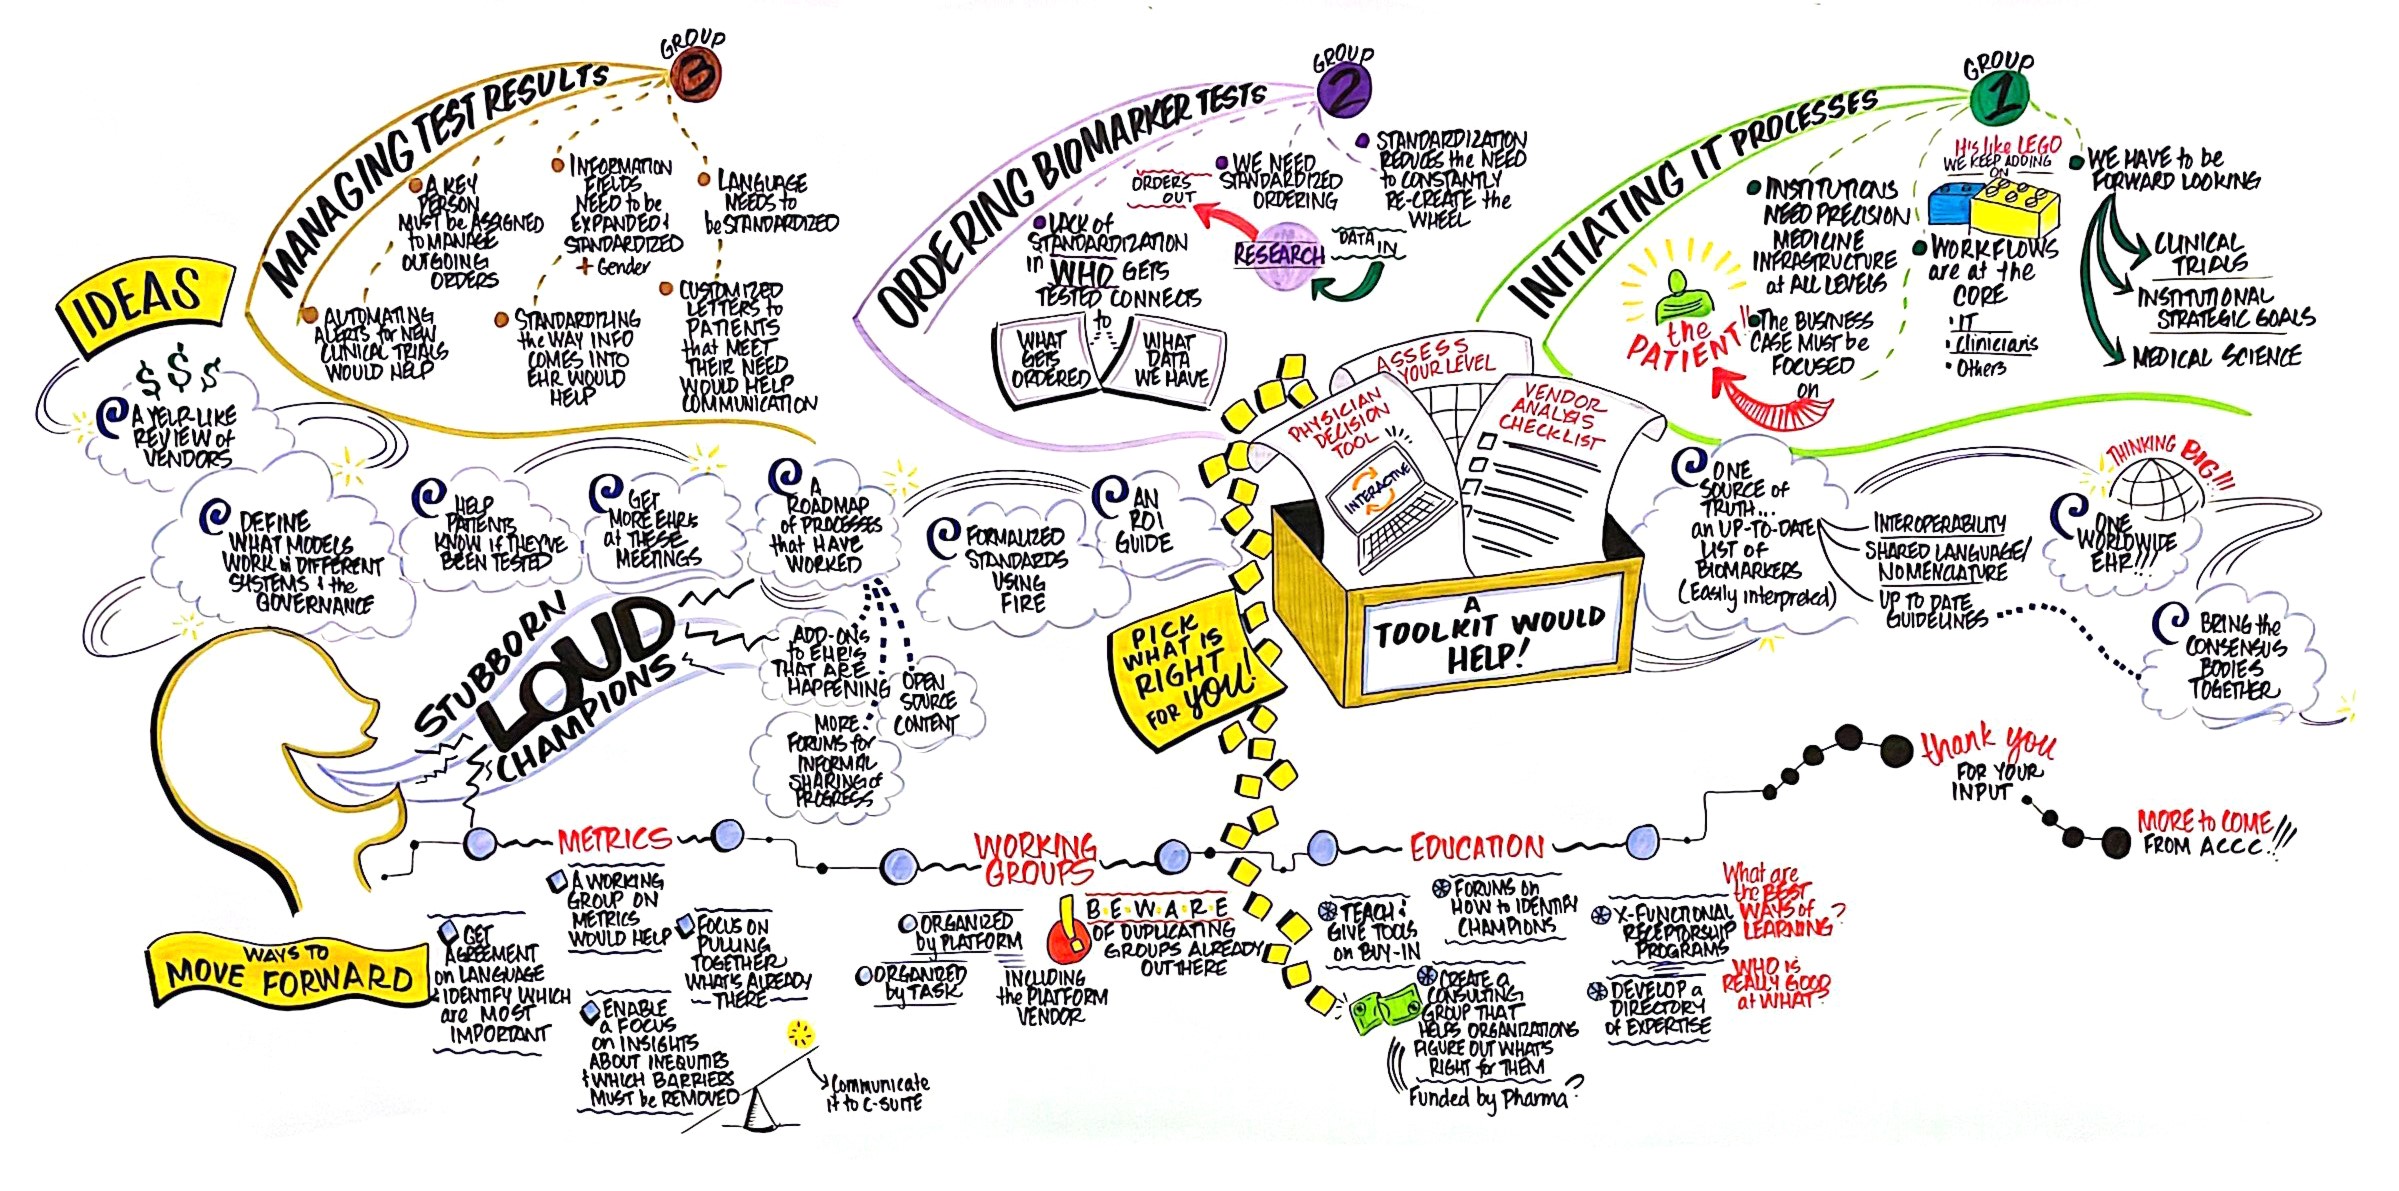 GROUP
3
MANAGING TEST RESULTS
A KEY
PERSON
MUST be ASSIGNED
to MANAGE
OUTGOING
ORDERS
INFORMATION
FIELDS
NEED to be
EXPANDED &
STANDARDIZED
+ Gender
LANGUAGE
NEEDS to
be STANDARDIZED
AUTOMATING
ALERTS for NEW
CLINICAL TRIALS
WOULD HELP
STANDARDIZING
the WAY INFO
COMES INTO
EHR WOULD
HELP
CUSTOMIZED
LETTERS to
PATIENTS
that MEET
THEIR NEED
WOULD HELP
COMMUNICATION
GROUP
2
ORDERING BIOMARKER TESTS
LACK of
STANDARDIZATION
in WHO GETS
TESTED CONNECTS
to
WHAT
GETS
ORDERED
WHAT
DATA
WE HAVE
ORDERS
OUT
RESEARCH
DATA
IN
WE NEED
STANDARDIZED
ORDERING
STANDARDIZATION
REDUCES the NEED
to CONSTANTLY
RE-CREATE the
WHEEL
GROUP
1
INITIATING IT PROCESSES
INSTITUTIONS
NEED PRECISION
MEDICINE
INFRASTRUCTURE
at ALL LEVELS
The BUSINESS
CASE MUST be
FOCUSED
on
the
PATIENT!!
It's like LEGO
WE KEEP ADDING
ON
WORKFLOWS
are at the
CORE
• IT
• Clinicians
• Others
WE HAVE to be
FORWARD LOOKING
CLINICAL
TRIALS
INSTITUTIONAL
STRATEGIC GOALS
MEDICAL SCIENCE
IDEAS
$$$
A YELP-LIKE
REVIEW of
VENDORS
DEFINE
WHAT MODELS
WORK in DIFFERENT
SYSTEMS & the
GOVERNANCE
HELP
PATIENTS
KNOW if THEY'VE
BEEN TESTED
GET
MORE EHR's
at THESE
MEETINGS
A
ROADMAP
of PROCESSES
that HAVE
WORKED
ADD-ONs
to EHR's
THAT ARE
HAPPENING
OPEN
SOURCE
CONTENT
MORE
FORUMS for
INFORMAL
SHARING of
PROGRESS
FORMALIZED
STANDARDS
USING
FIRE
AN
ROI
GUIDE
STUBBORN
LOUD
CHAMPIONS
ASSESS
YOUR LEVEL
PHYSICIAN
DECISION
TOOL
INTERACTIVE
VENDOR
ANALYSIS
CHECKLIST
A
TOOLKIT WOULD
HELP!
PICK
WHAT IS
RIGHT
FOR YOU!
ONE
SOURCE of
TRUTH...
an UP-TO-DATE
LIST OF
BIOMARKERS
(Easily interpreted)
INTEROPERABILITY
SHARED LANGUAGE/
NOMENCLATURE
UP TO DATE
GUIDELINES
THINKING BIG!!!
ONE
WORLDWIDE
EHR!!!
BRING the
CONSENSUS
BODIES
TOGETHER
WAYS TO
MOVE FORWARD
METRICS
GET
AGREEMENT
on LANGUAGE
& IDENTIFY WHICH
are MOST
IMPORTANT
A WORKING
GROUP ON
METRICS
WOULD HELP
FOCUS ON
PULLING
TOGETHER
WHAT'S ALREADY
THERE
ENABLE
a FOCUS
on INSIGHTS
ABOUT INEQUITIES
& WHICH BARRIERS
MUST be REMOVED
Communicate
it to C-SUITE
WORKING
GROUPS
ORGANIZED
by PLATFORM
ORGANIZED
by TASK
INCLUDING
the PLATFORM
VENDOR
!
BEWARE
OF DUPLICATING
GROUPS ALREADY
OUT THERE
EDUCATION
TEACH &
GIVE TOOLS
on BUY-IN
FORUMS on
HOW to IDENTIFY
CHAMPIONS
CREATE a
CONSULTING
GROUP THAT
HELPS ORGANIZATIONS
FIGURE OUT WHAT'S
RIGHT for THEM
Funded by Pharma?
X-FUNCTIONAL
RECEPTORSHIP
PROGRAMS
DEVELOP a
DIRECTORY
of EXPERTISE
What are
the BEST
WAYS of
LEARNING?
WHO is
REALLY GOOD
at WHAT?
thank you
FOR YOUR
INPUT
MORE to COME
FROM ACCC!!!